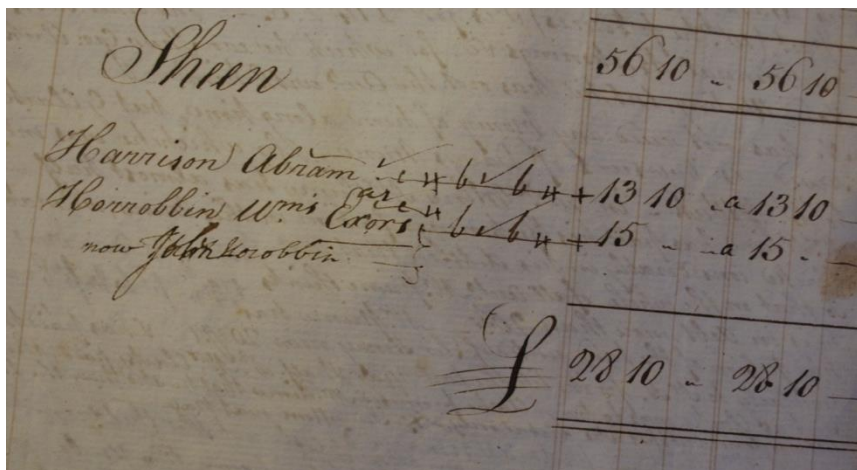 56 10 " 56 10
Sheen
Harrison Abram 13 10 " a 13 10
Horrobbin Wm's Exors 15 " " a 15 "
now John Horobbin
£ 28 10 " 28 10